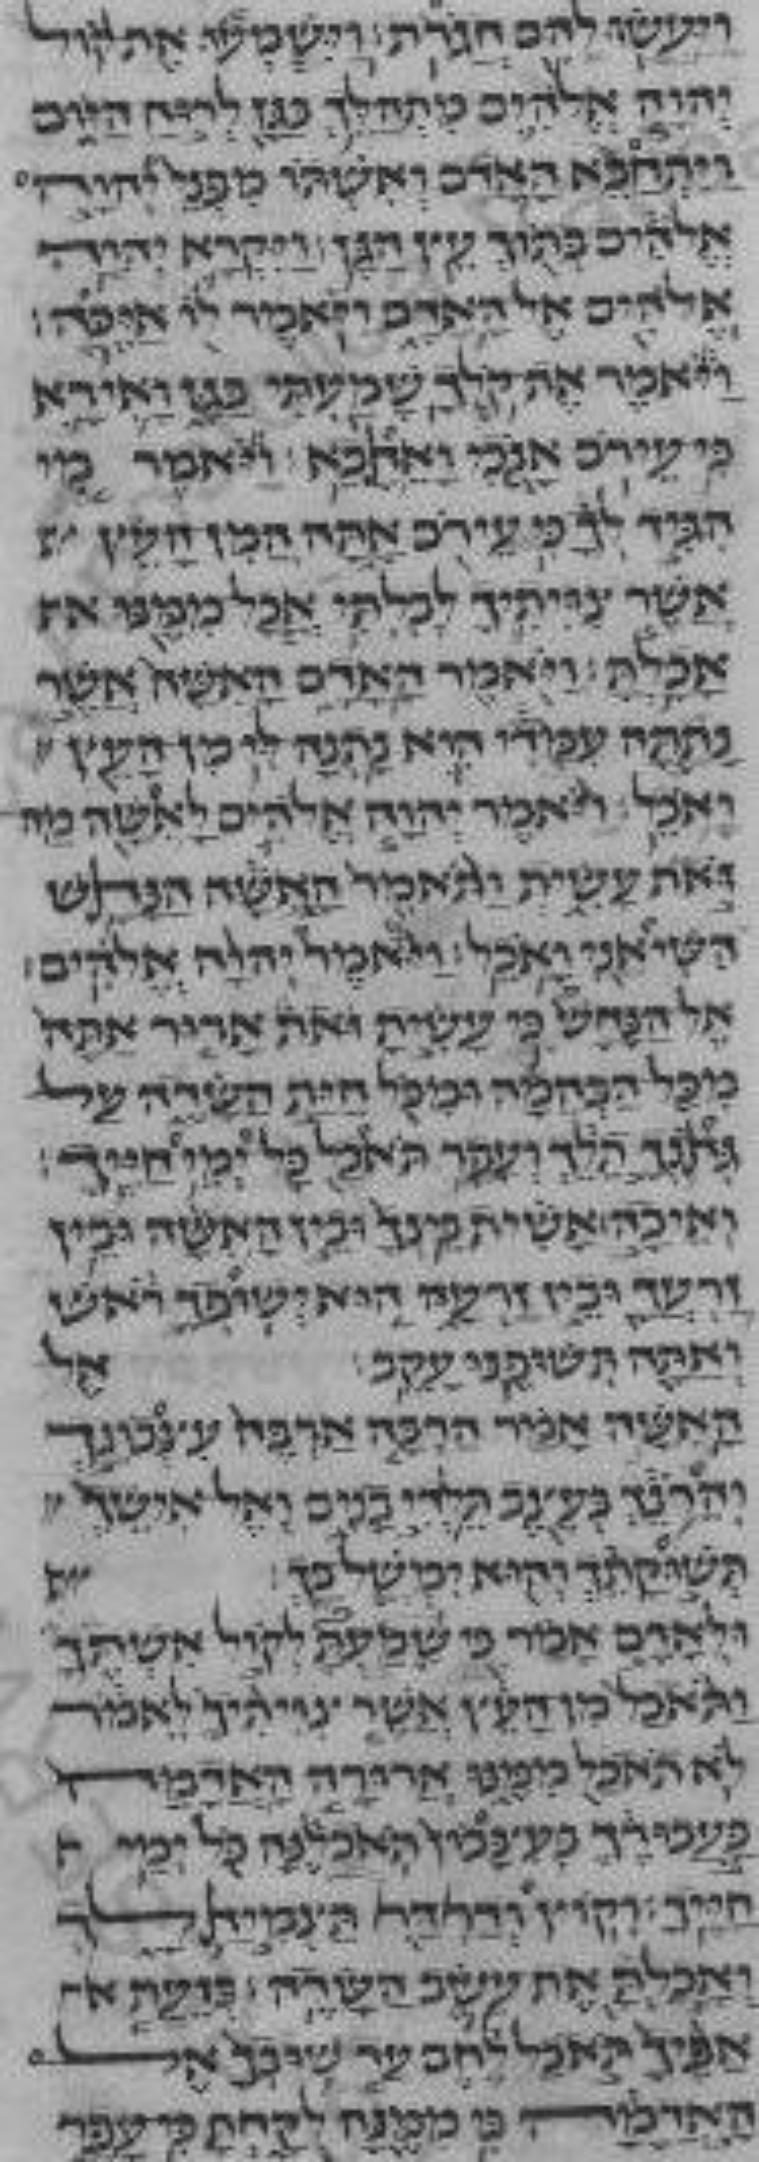 ויעשו להם חגרת: וישמעו את קול
יהוה אלהים מתהלך בגן לרוח היום
ויתחבא האדם ואשתו מפני יהוה
אלהים בתוך עץ הגן: ויקרא יהוה
אלהים אל האדם ויאמר לו איכה:
ויאמר את קלך שמעתי בגן ואירא
כי עירם אנכי ואחבא: ויאמר מי
הגיד לך כי עירם אתה המן העץ
אשר צויתיך לבלתי אכל ממנו
אכלת: ויאמר האדם האשה אשר
נתתה עמדי היא נתנה לי מן העץ
ואכל: ויאמר יהוה אלהים לאשה מה
זאת עשית ותאמר האשה הנחש
השיאני ואכל: ויאמר יהוה אלהים:
אל הנחש כי עשית זאת ארור אתה
מכל הבהמה ומכל חית השדה על
גחנך תלך ועפר תאכל כל ימי חייך:
ואיבה אשית בינך ובין האשה ובין
זרעך ובין זרעה הוא ישופך ראש
ואתה תשופנו עקב: אל
האשה אמר הרבה ארבה עצבונך
והרנך בעצב תלדי בנים ואל אישך
תשוקתך והוא ימשל בך:
ולאדם אמר כי שמעת לקול אשתך
ותאכל מן העץ אשר צויתיך לאמר
לא תאכל ממנו ארורה האדמה
בעבורך בעצבון תאכלנה כל ימי ח
חייך: וקוץ ודרדר תצמיח לך
ואכלת את עשב השדה: בזעת א
אפיך תאכל לחם עד שובך אל
האדמה כי ממנה לקחת כי עפר